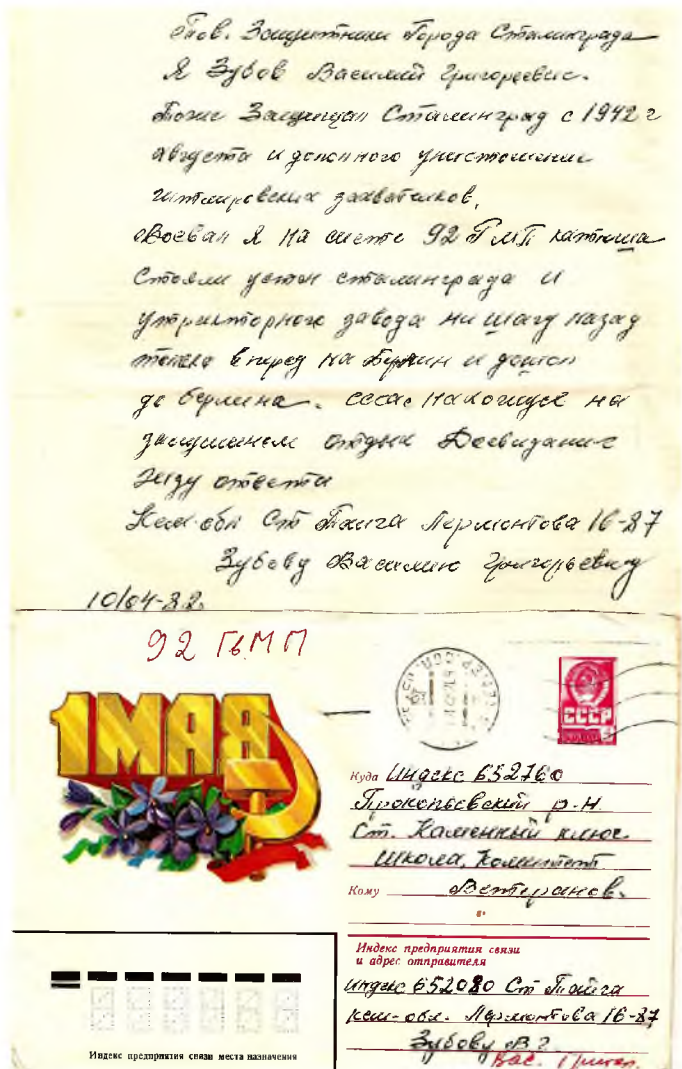 Тов. Защитники Города Сталинграда
Я Зубов Василий Григоревич.
Тоже Защищал Сталинград с 1942 г
Августа и до полного
захватчиков,
Воевал Я На 92 ГМП катюша
Стояли сталинграда и
завода ни шагу назад
вперед на Берлин и дошол
до берлина. На
отдых Досвидание
жду ответа
Кем-обл Ст Тайга Лермонтова 16-87
Зубову Василию Григорьевичу
10/04-82.
92 ГвМП
1 МАЯ
СССР
Куда Индекс 652760
Прокопьевский р-н
Ст. Каменный ключ
школа, Комитет
Кому Ветеранов.
Индекс предприятия связи
и адрес отправителя
индекс 652080 Ст Тайга
кем-обл. Лермонтова 16-87
Зубову В Г
Вас. Григор.
Индекс предприятия связи места назначения